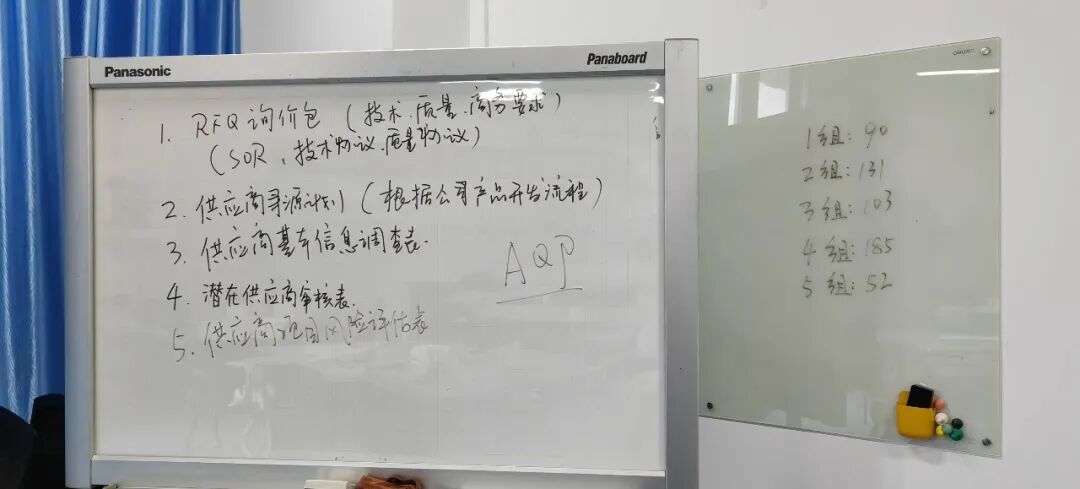 Panasonic
Panaboard
1. RFQ 询价包 (技术.质量.商务要求)
(SOR、技术协议.质量协议)
2. 供应商寻源计划 (根据公司产品开发流程)
3. 供应商基本信息调查表.
4. 潜在供应商审核表.
5. 供应商项目风险评估表
AQP
1组: 90
2组: 131
3组: 103
4组: 185
5组: 52